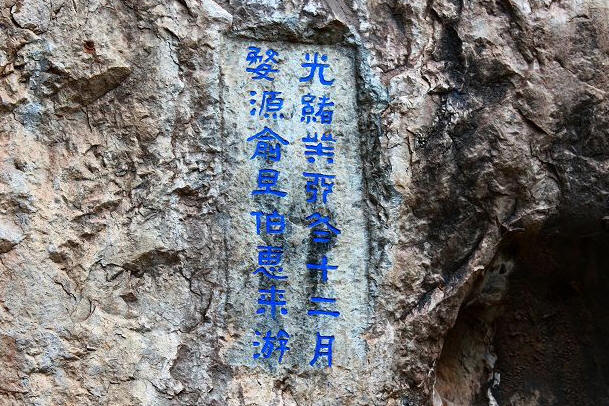 光緒冬十二月
婺源俞旦伯惠来游